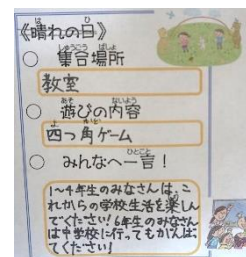 《晴れの日》
○ 集合場所
教室
○ 遊びの内容
四つ角ゲーム
○ みんなへ一言!
1〜4年生のみなさんは、こ
れからの学校生活を楽しん
でください!6年生のみなさん
は中学校に行ってもがんばっ
てください!